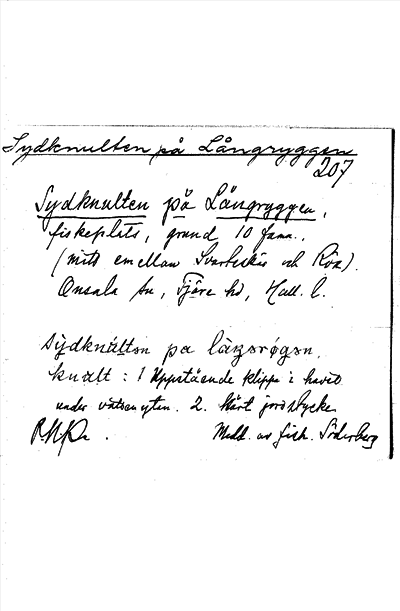 Sydknulten på Långryggen
207
Sydknulten på Långryggen,
fiskeplats, grund 10 famn.,
(mitt emellan Svarteskär och Röa).
Onsala sn, Fjäre hd, Hall. l.
knult : 1 Uppstående klippa i havet
under vattenytan. 2. Hårt jordstycke
Medd. av fisk. Söderberg